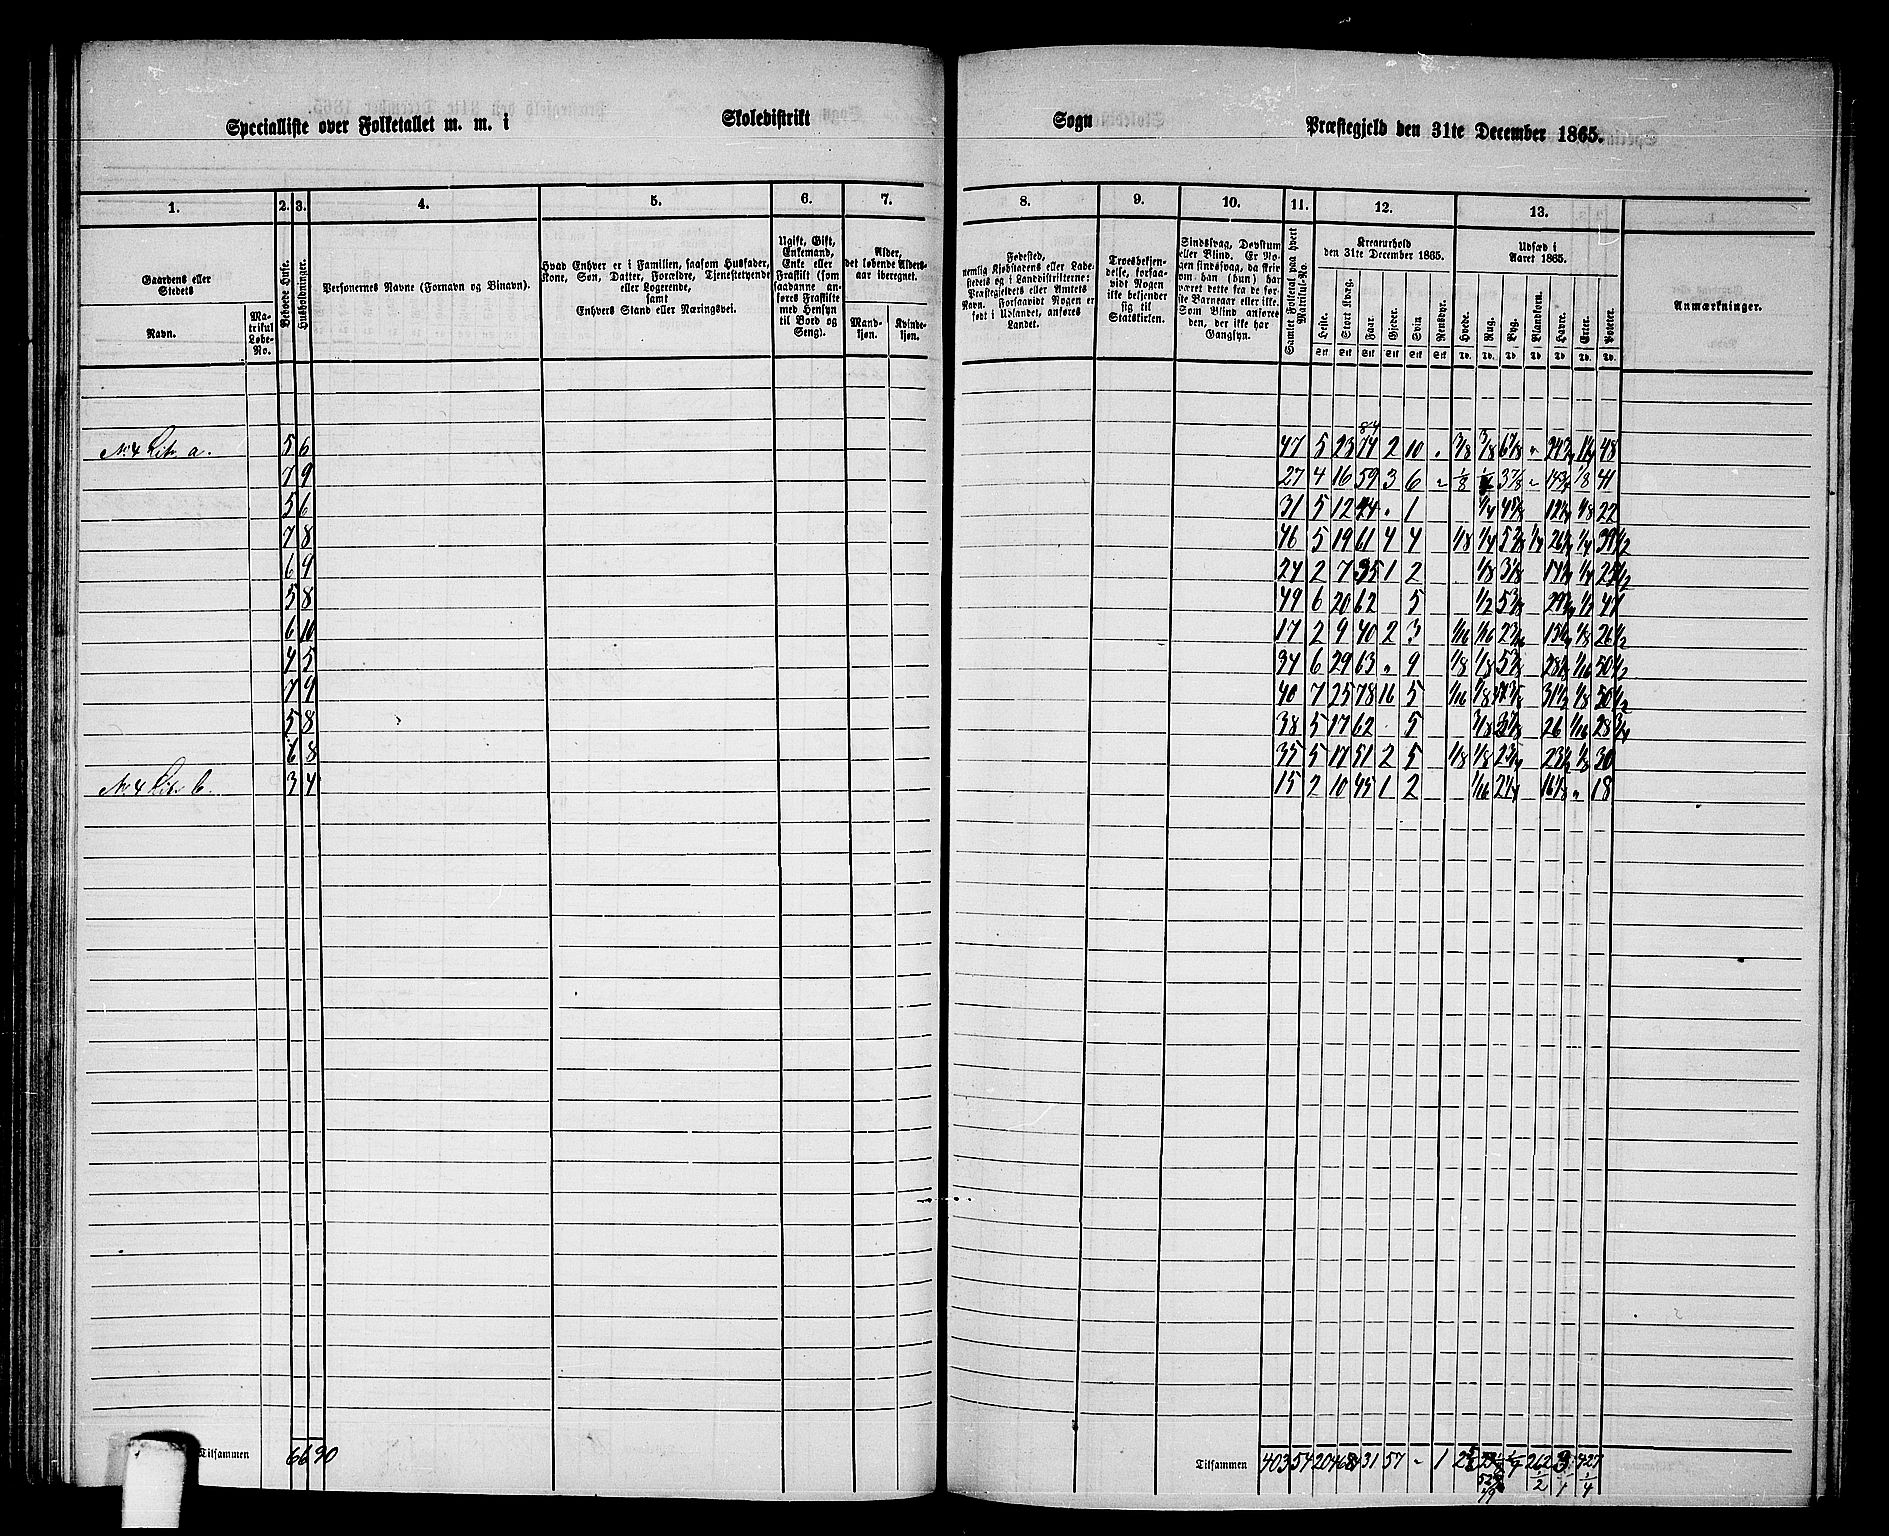 Specialliste over Folketallet m. m. i Skoledistrikt Sogn Præstegjeld den 31te December 1865.
1. 2. 3. 4. 5. 6. 7. 8. 9. 10. 11. 12. 13.
Gaardens eller Stedets
Navn.
Matrikul Løbe-No.
Bebede Huse.
Husholdninger.
Personernes Navne (Fornavn og Binavn).
Hvad Enhver er i Familien, saasom Husfader,
Kone, Søn, Datter, Forældre, Tjenestetyende
eller Logerende,
samt
Enhvers Stand eller Næringsvei.
Ugift, Gift,
Enkemand,
Enke eller
Fraskilt (som
saadanne an-
føres Fraskilte
med Hensyn
til Bord og
Seng).
Alder,
det løbende Alders-
aar iberegnet.
Mand-
kjøn.
Kvinde-
kjøn.
Fødested,
nemlig Kjøbstadens eller Lade-
stedets og i Landdistrikterne:
Præstegjeldets eller Amtets
Navn. Forsaavidt Nogen er
født i Udlandet, anføres
Landet.
Troesbekjen-
delse, forsaa-
vidt Nogen
ikke bekjender
sig til
Statskirken.
Sindssvag, Døvstum
eller Blind. Er No-
gen sindssvag, da skriv
om han (hun) har
været dette fra de før-
ste Barneaar eller ikke.
Som Blind anføres
den, der ikke har
Gangsyn.
Samlet Folketal paa hvert
Matrikul-No.
Kreaturhold
den 31te December 1865.
Heste. Stort Kvæg. Faar. Gjeder. Svin. Rensdyr.
Stk Stk Stk Stk Stk Stk
Udsæd i
Aaret 1865.
Hvede. Rug. Byg. Blandkorn. Havre. Erter. Poteter.
Td. Td. Td Td Td Td. Td.
Anmærkninger.
84
No 4 Litr. a. 5 6 47 5 23 74 2 10 „ 3/8 3/8 48
7 9 27 4 16 59 3 6 „ 1/8 3 7/8 „ 1/8 41
5 6 31 5 12 „ 1 1/4 1/8 22
7 8 46 5 19 61 4 4 1/8 1/4 1/4 39 1/2
6 9 24 2 7 1 2 1/8 3 1/8 1/4
5 8 49 6 20 62 5 1/2 47
6 10 17 2 9 40 2 3 1/16 1/16 1/8 26 1/2
4 5 34 6 29 63 „ 9 1/8 1/8 1/16 50 1/2
7 9 40 7 25 78 16 5 1/16 1/8 31 1/2 1/8 50 1/2
5 8 38 5 17 62 5 3/8 26 1/16 28 3/4
6 8 35 5 17 51 2 5 1/8 1/8 1/8 30
No 4 Litr. b. 3 4 15 2 10 45 1 2 1/16 16 1/8 „ 18
Tilsammen 66 90
Tilsammen 403 54 204 57 „ 1 262 1/2 427 1/4